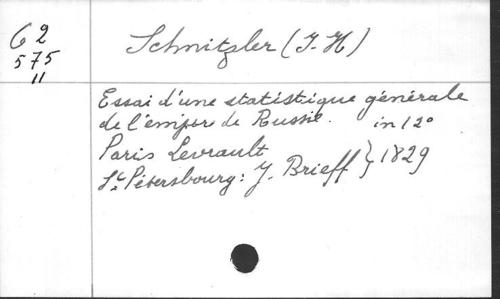 G 2
575
11
Schnitzler (J-H)
Essai d'une statistique générale
de l'empire de Russie. in 12°
Paris Levrault
St Pétersbourg: J. Brieff } 1829